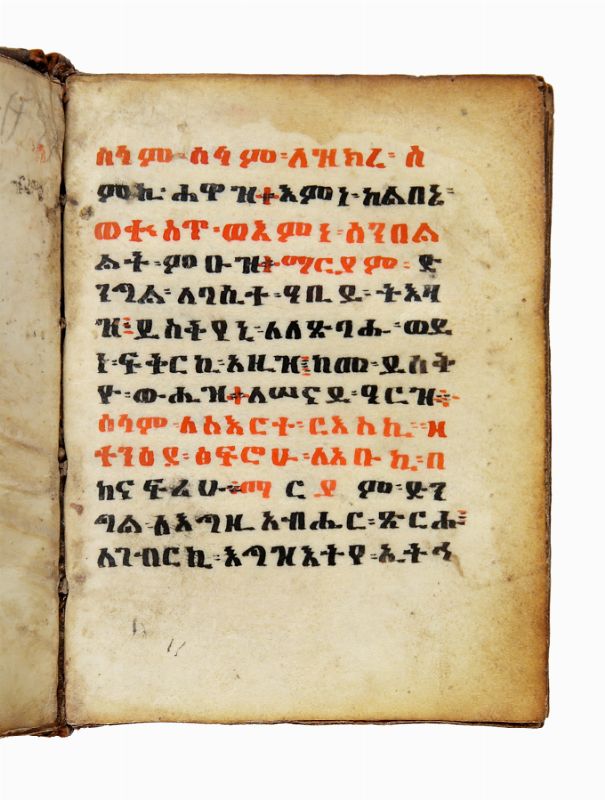 ሰላም፡ሰላም፡ለዝክረ፡ስ
ምኪ፡ሐዋዝ፡እምነ፡ከልበኔ፡
ወቍስጥ፡ወእምነ፡ሰንበል
ልት፡ምዑዝ፡ማርያም፡ድ
ንግል፡ለባሲተ፡ዓቢይ፡ትእዛ
ዝ፨ይስትየኒ፡ለለጽባሑ፡ወይ
ነ፡ፍትርኪ፡አዚዝ፨ከመ፡ይስት
ዮ፡ውሒዝ፡ለሠናይ፡ዓርዝ፨
ሰላም፡ለስእርተ፡ርእስኪ፡ዘ
ተንዕየ፡ዕፍሮሁ፡ለአቡኪ፡በ
ከናፍሪሁ፡ማርያም፡ድን
ግል፡ለእግዚአብሔር፡ጽርሑ፨
ለገብርኪ፡እግዝእትየ፡ኢትኅ